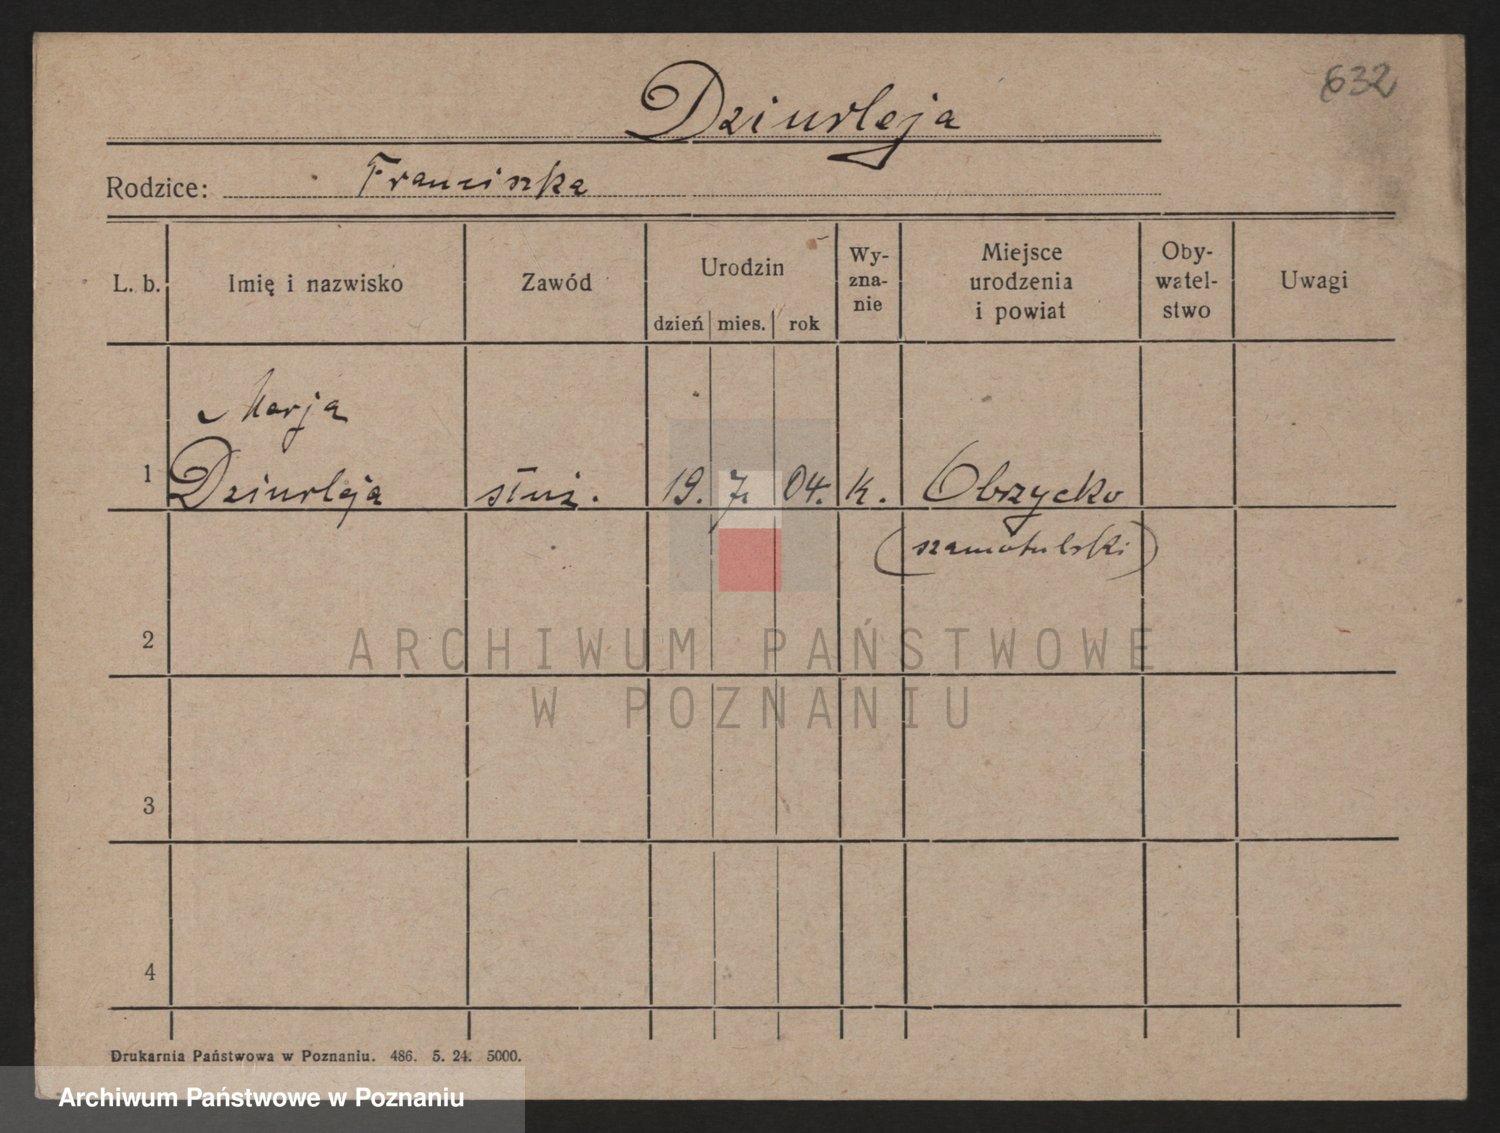 632
Dziurleja
Rodzice: Franciszka
L. b. Imię i nazwisko Zawód Urodzin dzień mies. rok Wy-zna-nie Miejsce urodzenia i powiat Oby-watel-stwo Uwagi
Marja
1 Dziurleja służ. 19. 7. 04. k. Obrzycko
(szamotulski)
2
ARCHIWUM PAŃSTWOWE
W POZNANIU
3
4
Drukarnia Państwowa w Poznaniu. 486. 5. 24. 5000.
Archiwum Państwowe w Poznaniu